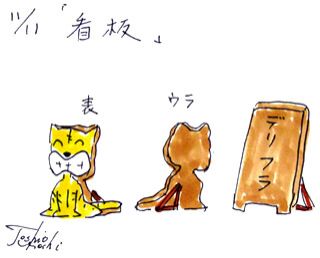 11/11 「看板」
表 ウラ
デリフラ
Toshio Koshi